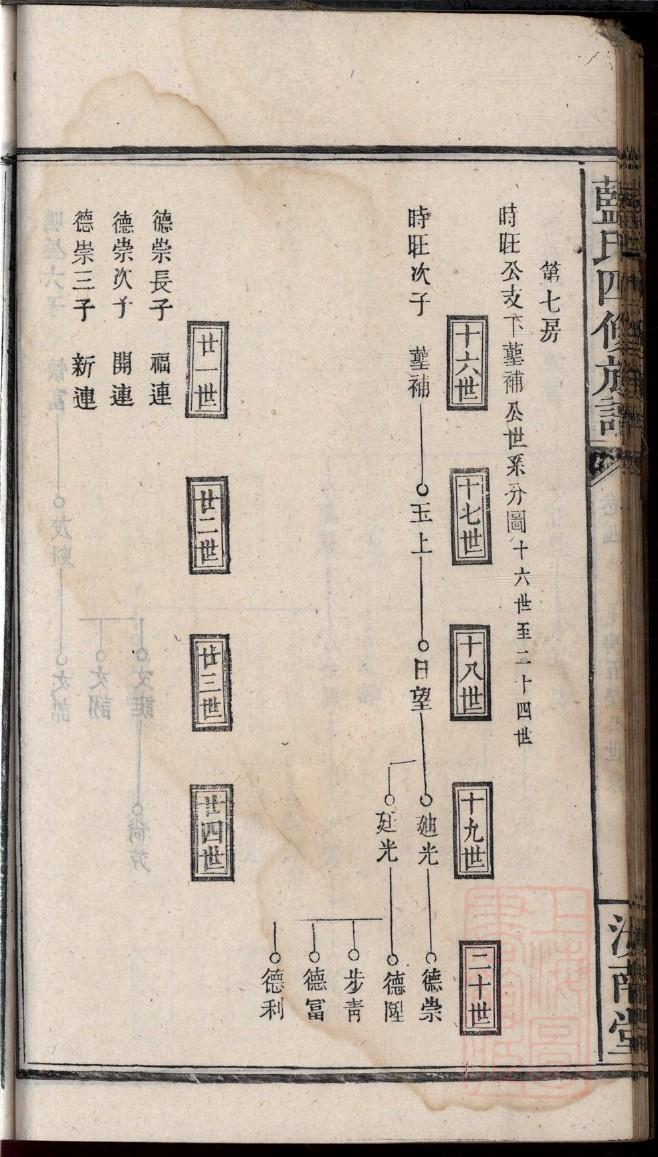 藍氏四修族譜
汝南堂
第七房
時旺公支下菫補公世系分圖十六世至二十四世
十六世
十七世
十八世
十九世
二十世
時旺次子 菫補
玉上
日望
迪光
德崇
廷光
德陞
步青
德富
德利
廿一世
廿二世
廿三世
廿四世
德崇長子 福連
德崇次子 開連
德崇三子 新連